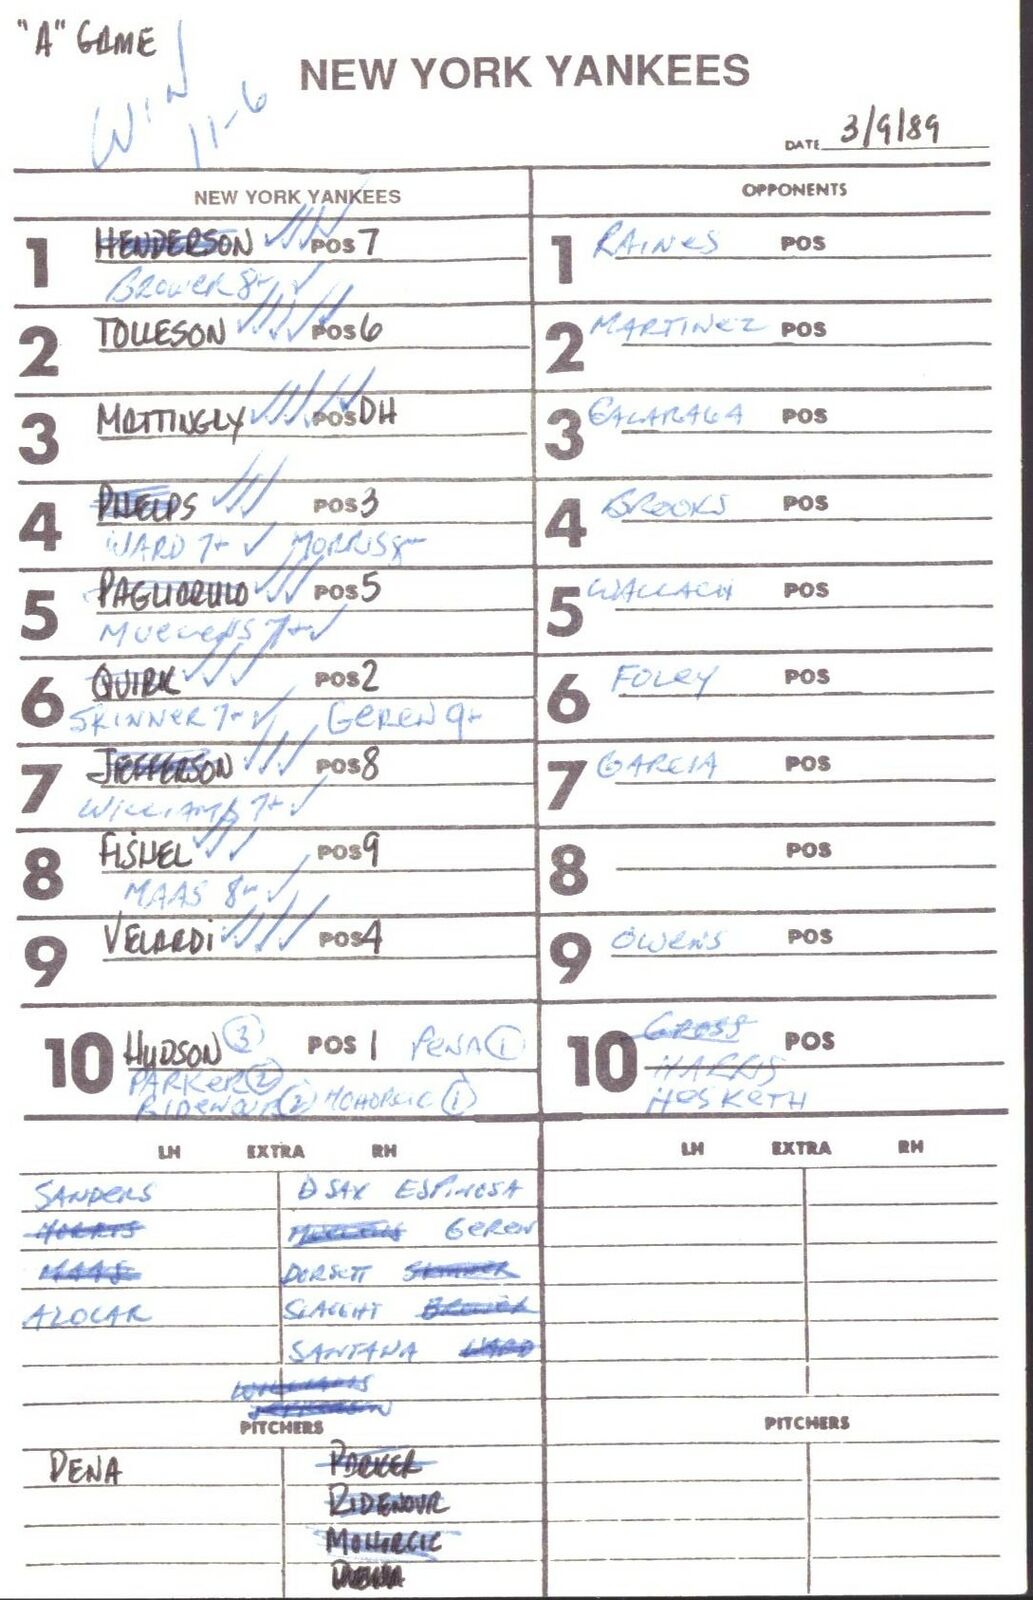 "A" GAME
WIN
11-6
NEW YORK YANKEES
DATE 3/9/89
NEW YORK YANKEES
1 HENDERSON POS 7
BROWER 8-
2 TOLLESON POS 6
3 MATTINGLY POS DH
4 PHELPS POS 3
WARD 7- MORRIS 8-
5 PAGLIARULO POS 5
MUELENS 7-
6 QUIRK POS 2
SKINNER 7- GEREN 9-
7 JEFFERSON POS 8
WILLIAMS 7-
8 FISHEL POS 9
MAAS 8-
9 VELARDI POS 4
10 HUDSON 3 POS 1 PENA 1
PARKER 2
RIDENOUR 2 MOHORCIC 1
LH EXTRA RH
SANDERS D SAX ESPINOSA
MORRIS MUELENS GEREN
MAAS DORSETT SKINNER
AZOCAR SLAUGHT BROWER
SANTANA WARD
WILLIAMS
JEFFERSON
PITCHERS
PENA PARKER
RIDENOUR
MOHORCIC
OPPONENTS
1 RAINES POS
2 MARTINEZ POS
3 GALARAGA POS
4 BROOKS POS
5 WALLACH POS
6 FOLEY POS
7 GARCIA POS
8 POS
9 OWENS POS
10 GROSS POS
HARRIS
HESKETH
LH EXTRA RH
PITCHERS